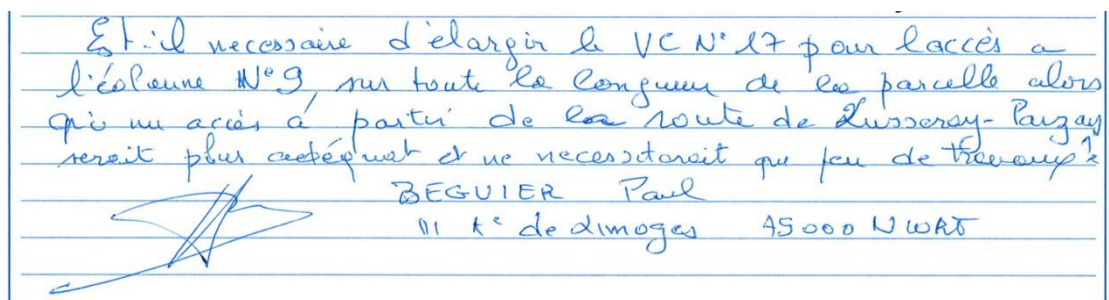 Est-il necessaire d'élargir le VC N°17 pour l'accès a
l'éolienne N°9, sur toute la longueur de la parcelle alors
qu'un accès à partir de la route de Lusseray-Paizay
serait plus adéquat et ne necessiterait que peu de travaux?
BEGUIER Paul
111 Re de Limoges 79000 NIORT